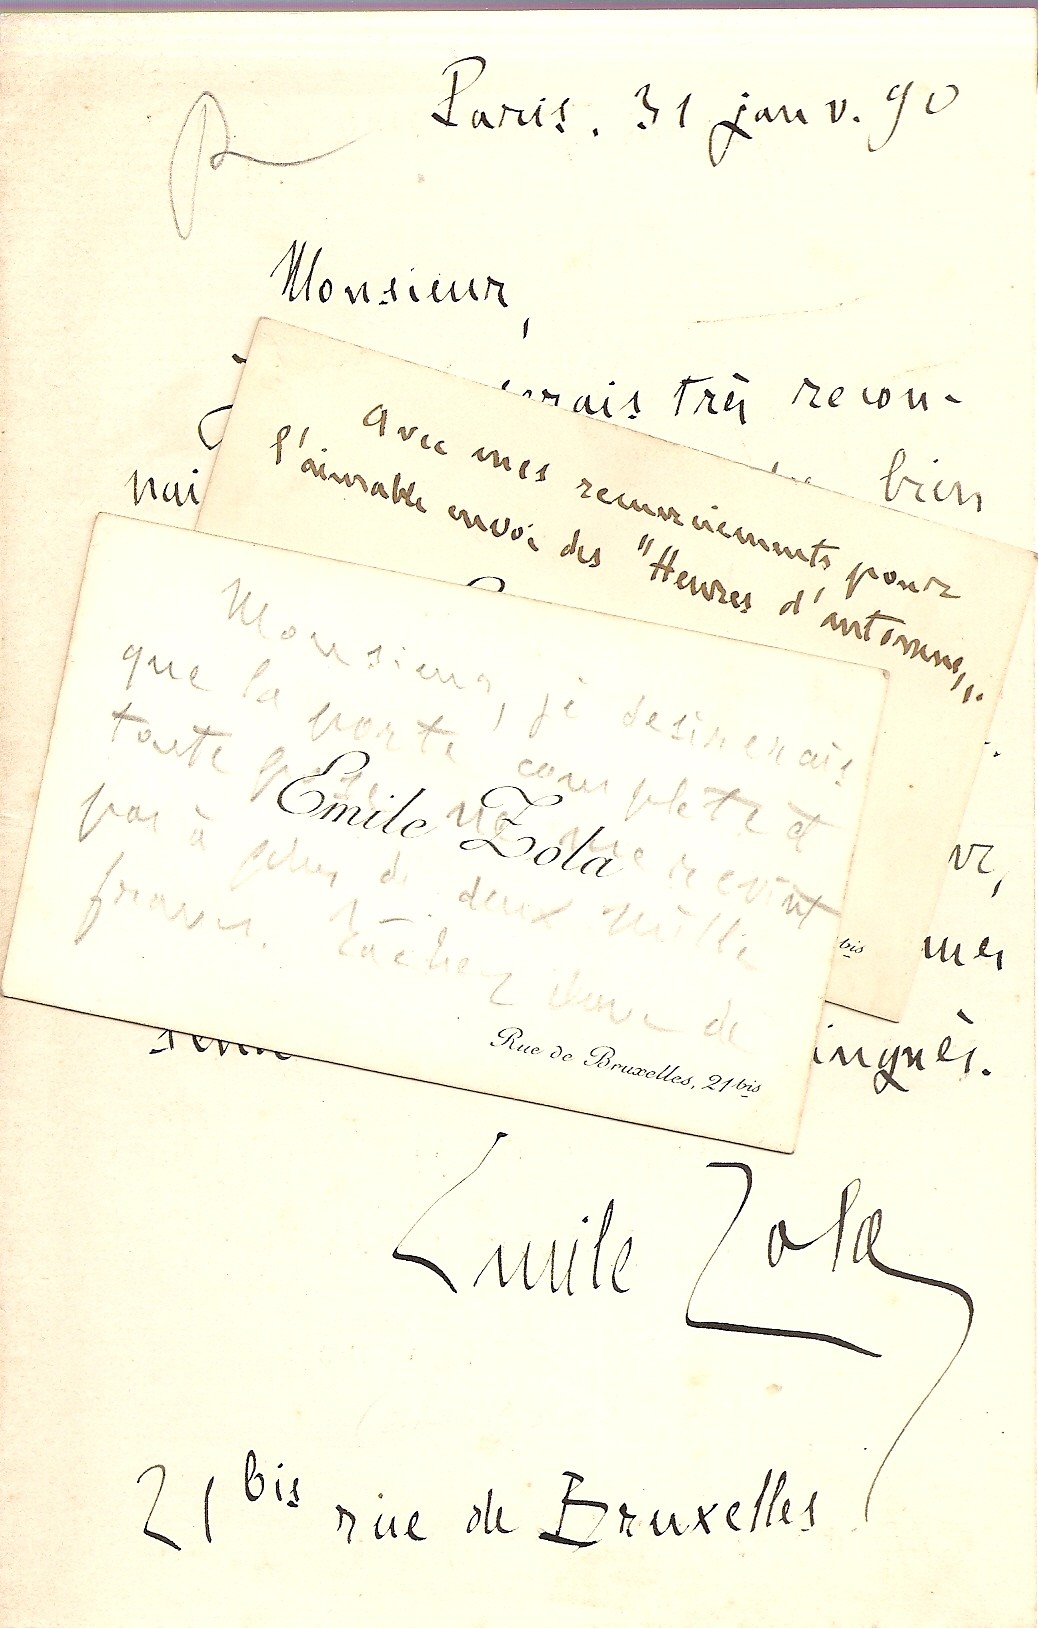 Paris. 31 janv. 90
Monsieur,
serais très recon-
nai
bien
Avec mes remerciements pour
l'aimable envoi des "Heures d'automne".
Monsieur, je desirerais
que la porte complète et
toute posée ne me revînt
pas à plus de deux mille
francs. Tâchez donc de
Emile Zola
Rue de Bruxelles, 21 bis
bis
mes
ingués.
Emile Zola
21 bis rue de Bruxelles